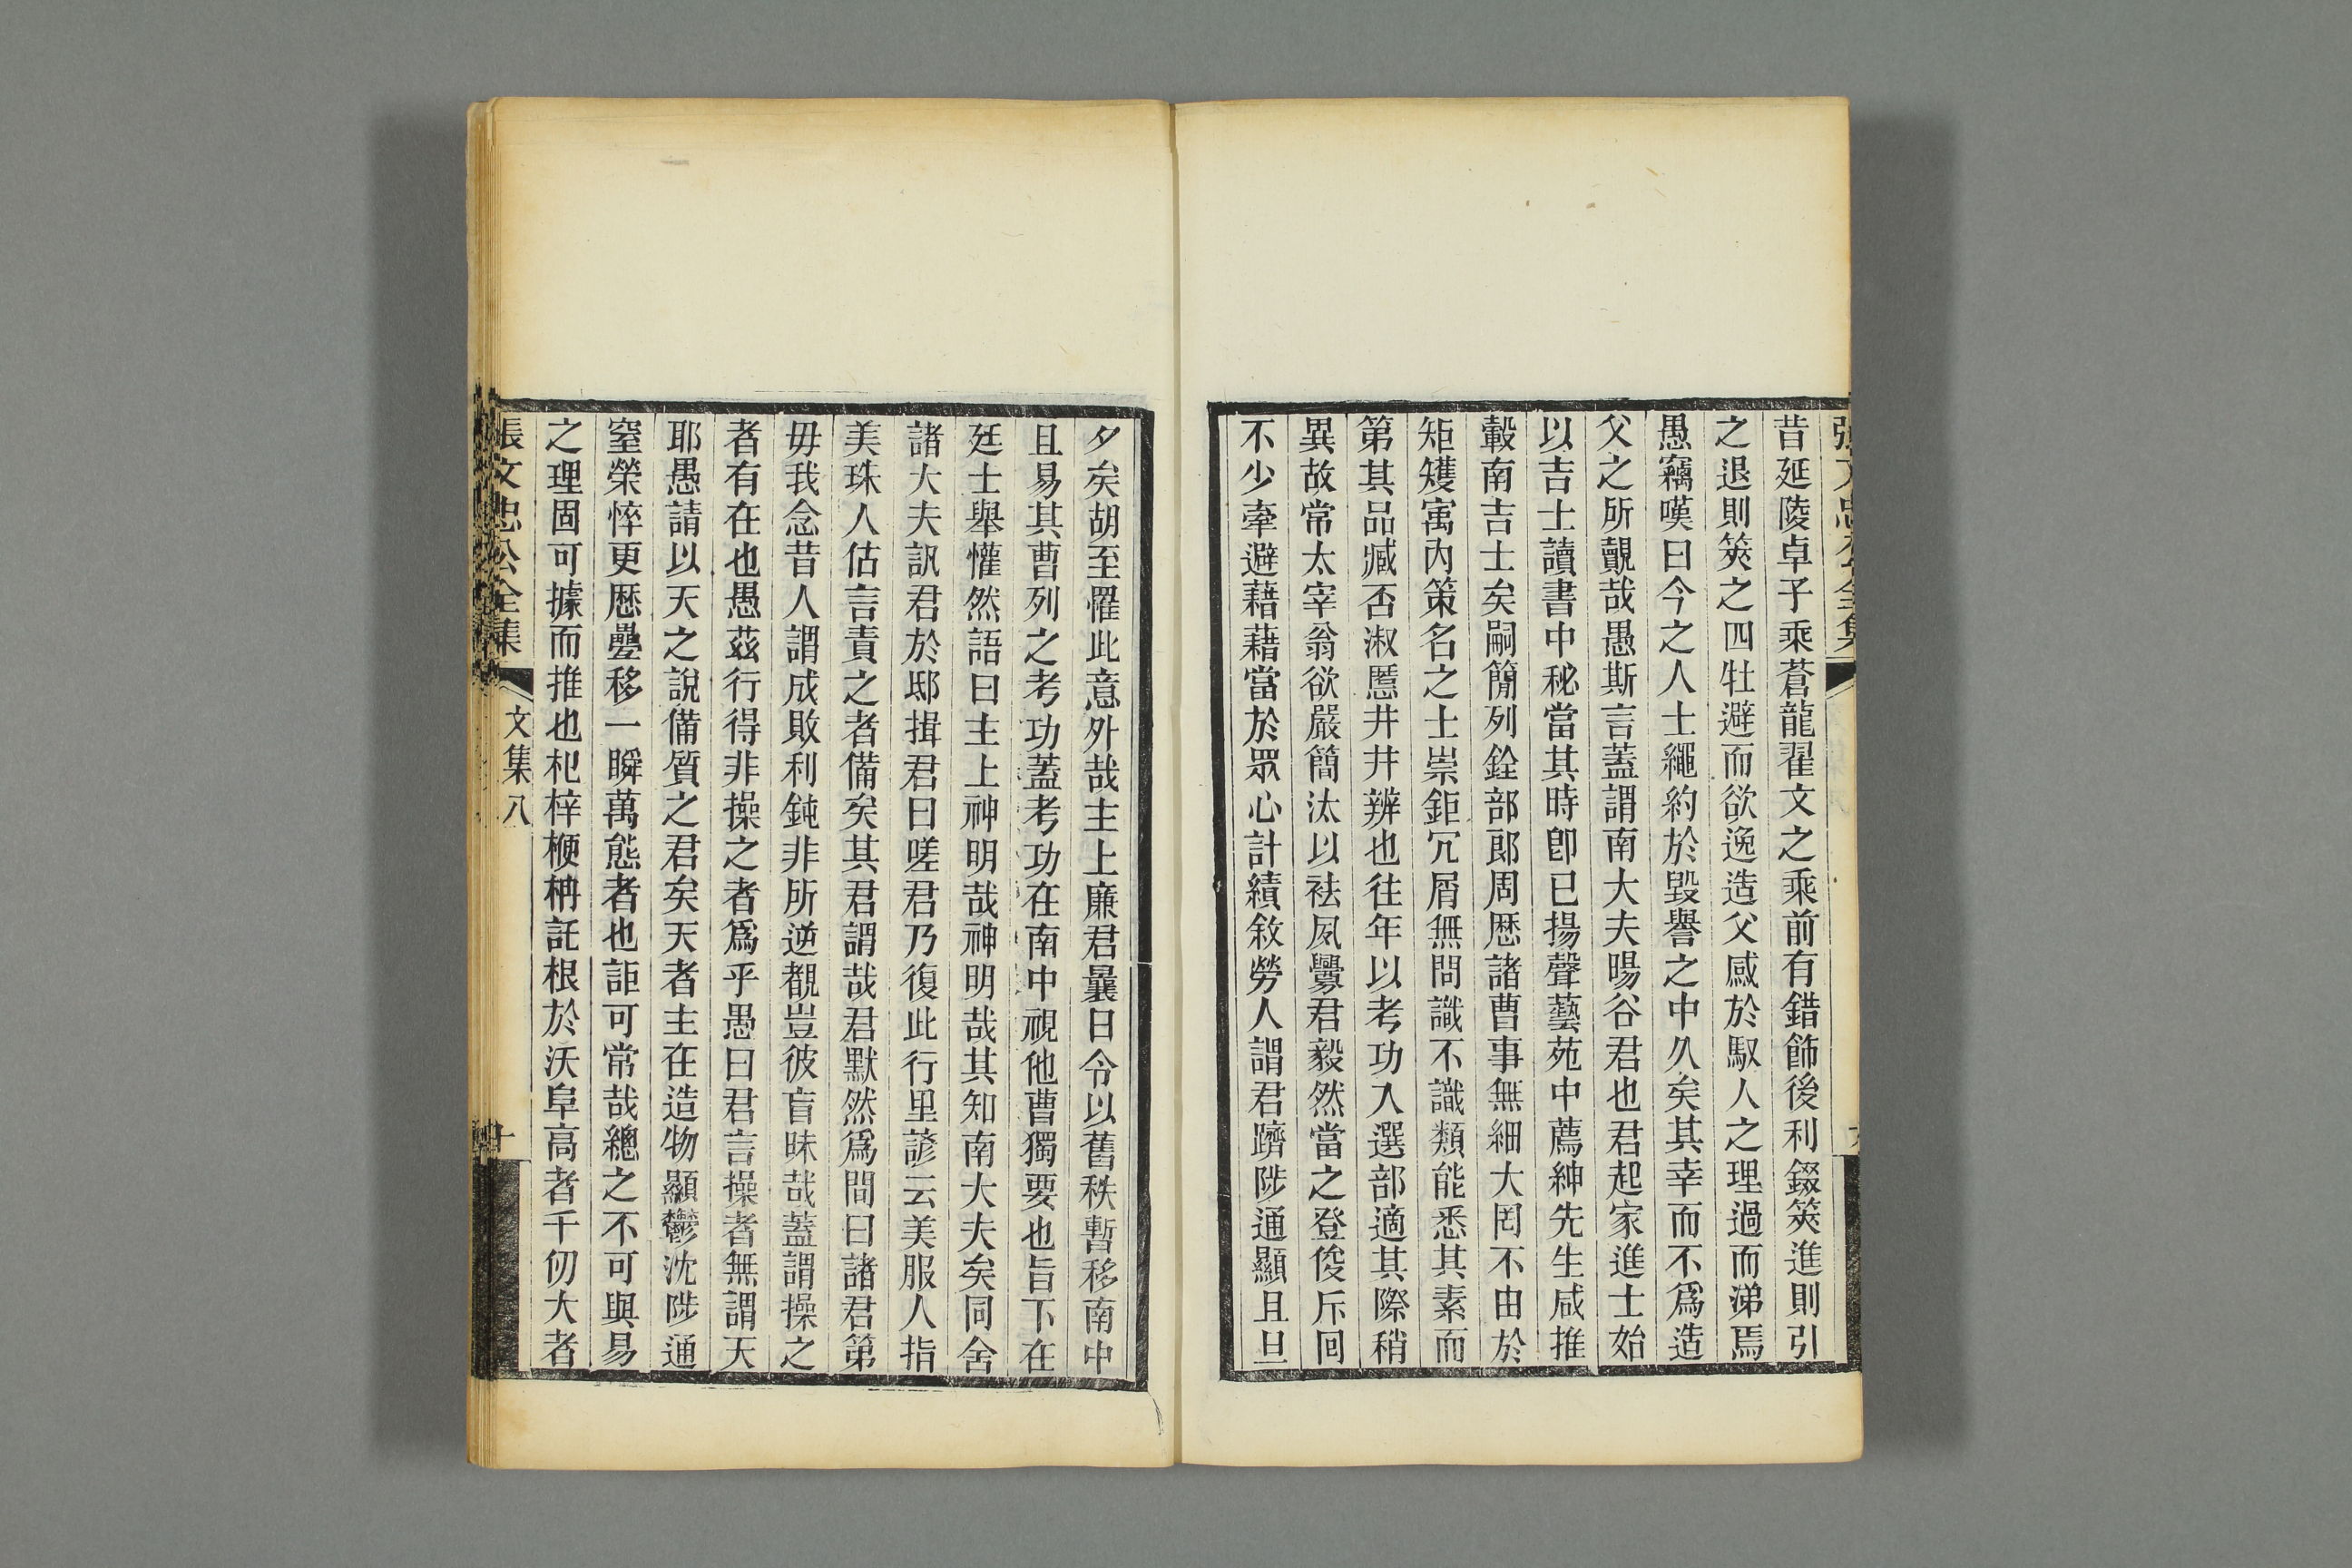 張文忠公全集
昔延陵卓子乘蒼龍翟文之乘前有錯飾後利錣筴進則引
之退則筴之四牡避而欲逸造父感於馭人之理過而涕焉
愚竊嘆曰今之人士繩約於毀譽之中久矣其幸而不爲造
父之所覿哉愚斯言蓋謂南大夫暘谷君也君起家進士始
以吉士讀書中秘當其時卽已揚聲藝苑中薦紳先生咸推
轂南吉士矣嗣簡列銓部郎周歷諸曹事無細大罔不由於
矩矱寓內策名之士崇鉅冗屑無問識不識類能悉其素而
第其品臧否淑慝井井辨也往年以考功入選部適其際稍
異故常太宰翁欲嚴簡汰以袪夙釁君毅然當之登俊斥回
不少牽避藉藉當於眾心計績敘勞人謂君躋陟通顯且旦
夕矣胡至罹此意外哉主上廉君曩日令以舊秩暫移南中
且易其曹列之考功蓋考功在南中視他曹獨要也旨下在
廷士舉懽然語曰主上神明哉神明哉其知南大夫矣同舍
諸大夫訊君於邸揖君曰嗟君乃復此行里諺云美服人指
美珠人估言責之者備矣其君謂哉君默然爲間曰諸君第
毋我念昔人謂成敗利鈍非所逆覩豈彼盲昧哉蓋謂操之
者有在也愚茲行得非操之者爲乎愚曰君言操者無謂天
耶愚請以天之說備質之君矣天者主在造物顯鬱沈陟通
窒榮悴更歷疊移一瞬萬態者也詎可常哉總之不可與易
之理固可據而推也杞梓楩柟託根於沃阜高者千仞大者
張文忠公全集
文集八
十